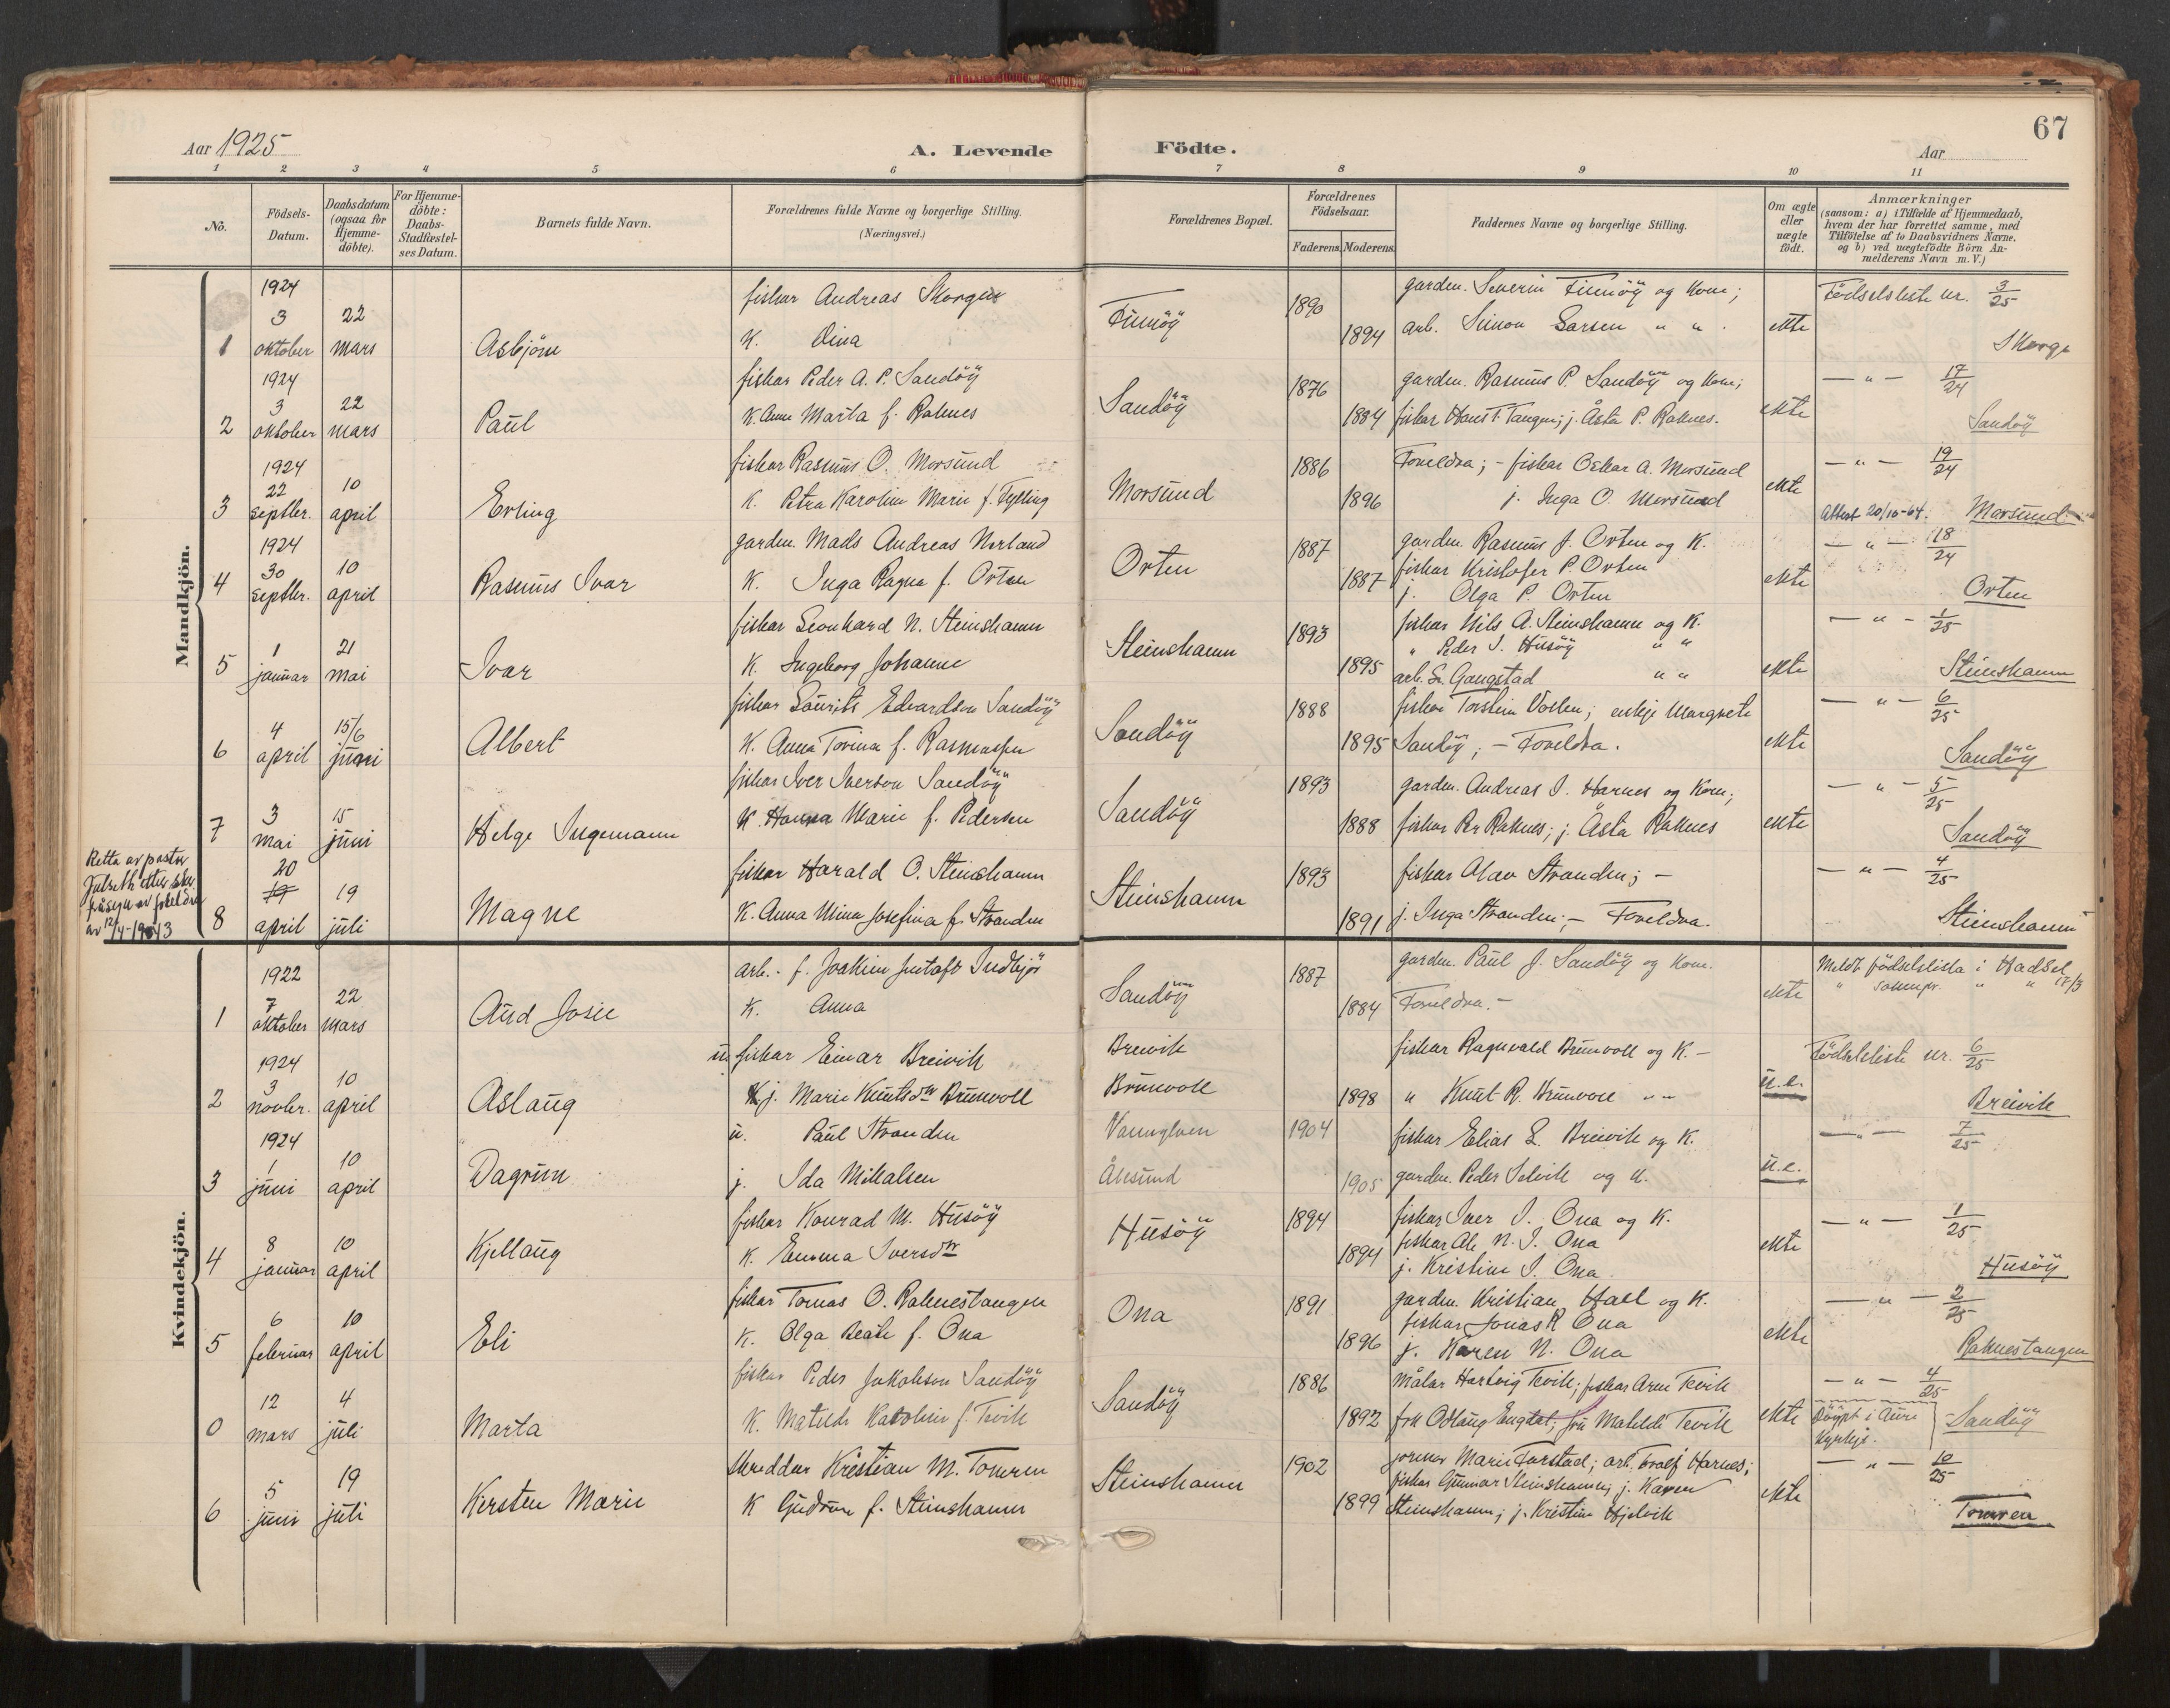 67
Aar 1925
A. Levende Födte.
Aar
1 2 3 4 5 6 7 8 9 10 11
No.
Födsels-Datum.
Daabsdatum (ogsaa för Hjemme-döbte).
For Hjemme-döbte: Daabs-Stadfæstel-ses Datum.
Barnets fulde Navn.
Forældrenes fulde Navne og borgerlige Stilling.
(Næringsvei.)
Forældrenes Bopæl.
Forældrenes Födselsaar.
Faderens. Moderens.
Faddernes Navne og borgerlige Stilling.
Om ægte eller uægte födt.
Anmærkninger
(saasom: a) i Tilfælde af Hjemmedaab,
hvem der har forrettet samme, med
Tilföielse af to Daabsvidners Navne.
og b) ved uægtefödte Börn An-
melderens Navn m. V.)
Mandkjön.
1924 fiskar Andreas Skorgen garden. Severin Finnöy og Kone; Födselsliste nr. 3/25
3 22 Finnöy 1890
1 oktober mars Asbjörn K. Dina 1894 arb. Simon Larsen " " ekte Skorge
1924 fiskar Peder A. P. Sandöy garden. Rasmus P. Sandöy og Kone; — " — 17/24
3 22 Sandöy 1876
2 oktober mars Paul K. Anne Marta f. Raknes 1884 fiskar Hans T. Tangen; j. Åsta P. Raknes. ekte Sandöy
1924 fiskar Rasmus O. Morsund 1886 Foreldra; - fiskar Oskar A. Morsund — " — 19/24
22 10 Morsund
3 septbr. april Erling K. Petra Karoline Marie f. Fylling 1896 j. Inga O. Morsund ekte Attest 20/10-64. Morsund
1924 garden. Mads Andreas Nerland 1887 garden. Rasmus J. Orten og K. — " — 18/24
30 10 Orten fiskar Kristofer P. Orten
4 septbr. april Rasmus Ivar K. Inga Ragna f. Orten 1887 j. Olga P. Orten ekte Orten
fiskar Leonhard N. Steinshamn 1893 fiskar Nils A. Steinshamn og K. — " — 1/25
1 21 Steinshamn " Peder I. Husöy " "
5 januar mai Ivar K. Ingeborg Johanne 1895 arb. S. Gangstad " " ekte Steinshamn
fiskar Laurits Edvardsen Sandöy 1888 fiskar Torstein Voslen; enkje Margrete — " — 6/25
4 15/6 Sandöy
6 april juni Albert K. Anna Torina f. Rasmussen 1895 Sandöy; - Foreldra. ekte Sandöy
fiskar Iver Iverson Sandöy 1893 garden. Andreas I. Harnes og Kone; — " — 5/25
3 15 Sandöy
7 mai juni Helge Ingemann K. Hanna Marie f. Pedersen 1888 fiskar Per Raknes; j. Åsta Raknes ekte Sandöy
Retta av pastor
20 fiskar Harald O. Steinshamn 1893 fiskar Olav Stranden; - — " — 4/25
19 19 Steinshamn
av 12/4-1943
8 april juli Magne K. Anna Mina Josefina f. Stranden 1891 j. Inga Stranden; - Foreldra. Steinshamn
Kvindekjön.
1922 arb. - f. Joakim Gustaft Indbjör 1887 garden. Paul J. Sandöy og Kone. Meldt födselslista i Hadsel
7 22 Sandöy " sokenpr. " " 18/3
1 oktober mars Aud Josie K. Anna 1884 Foreldra. - ekte
1924 u. fiskar Einar Breivik Breivik fiskar Ragnvald Brunvoll og K. - Födselsliste nr. 6/25
3 10
2 novbr. april Aslaug j. Marie Knutsdtr Brunvoll Brunvoll 1898 " Knut R. Brunvoll " " u.e. Breivik
1924 u. Paul Stranden 1904 fiskar Elias L. Breivik og K. — " — 7/25
1 10
3 juni april Dagrun j. Ida Mikalsen Ålesund 1905 garden. Peder Selvik og K. u.e.
fiskar Konrad M. Husöy 1894 fiskar Iver I. Ona og K. — " — 1/25
8 10 Husöy fiskar Ole N. I. Ona
4 januar april Kjellaug K. Emma Iversdtr 1894 j. Kristine I. Ona ekte Husöy
fiskar Tomas O. Raknestangen 1891 garden. Kristian Hall og K. — " — 2/25
6 10 Ona fiskar Jonas R Ona
5 februar april Eli K. Olga Beate f. Ona 1896 j. Karen N. Ona ekte Raknestangen
fiskar Peder Jakobson Sandöy 1886 målar Hartvig Tevik; fiskar Arne Tevik — " — 4/25
12 4 Sandöy
0 mars juli Marta K. Matilde Karoline f. Tevik 1892 frk Oslaug Engdal; fru Matilde Tevik ekte Döypt i Aure Kyrkje. Sandöy
skreddar Kristian M. Tomren 1902 jormor Marie Farstad; arb. Trolf Harnes; — " — 10/25
5 19 Steinshamn fiskar Gunnar Steinshamn; j. Karen
6 juni juli Kersten Marie K Gudrun f. Steinshamn 1899 Steinshamn; j. Kristine Hjelvik ekte Tomren